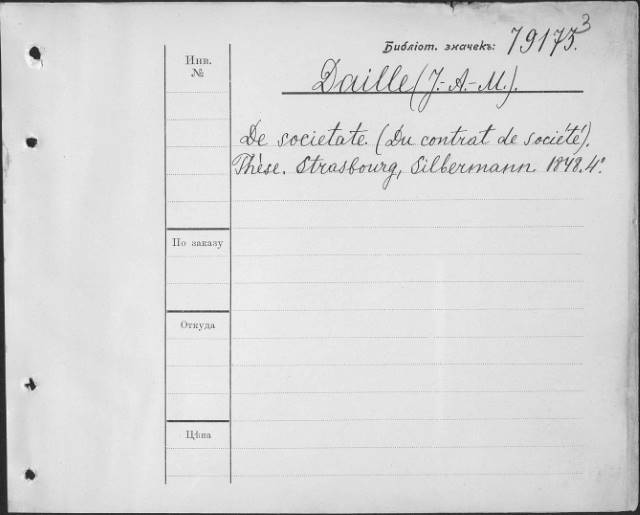 Библіот. значекъ: 79173.3
Инв.
№
Daille (J.-A.-M.).
De societate (Du contrat de société).
Thèse. Strasbourg, Silbermann 1848. 4°.
По заказу
Откуда
Цѣна